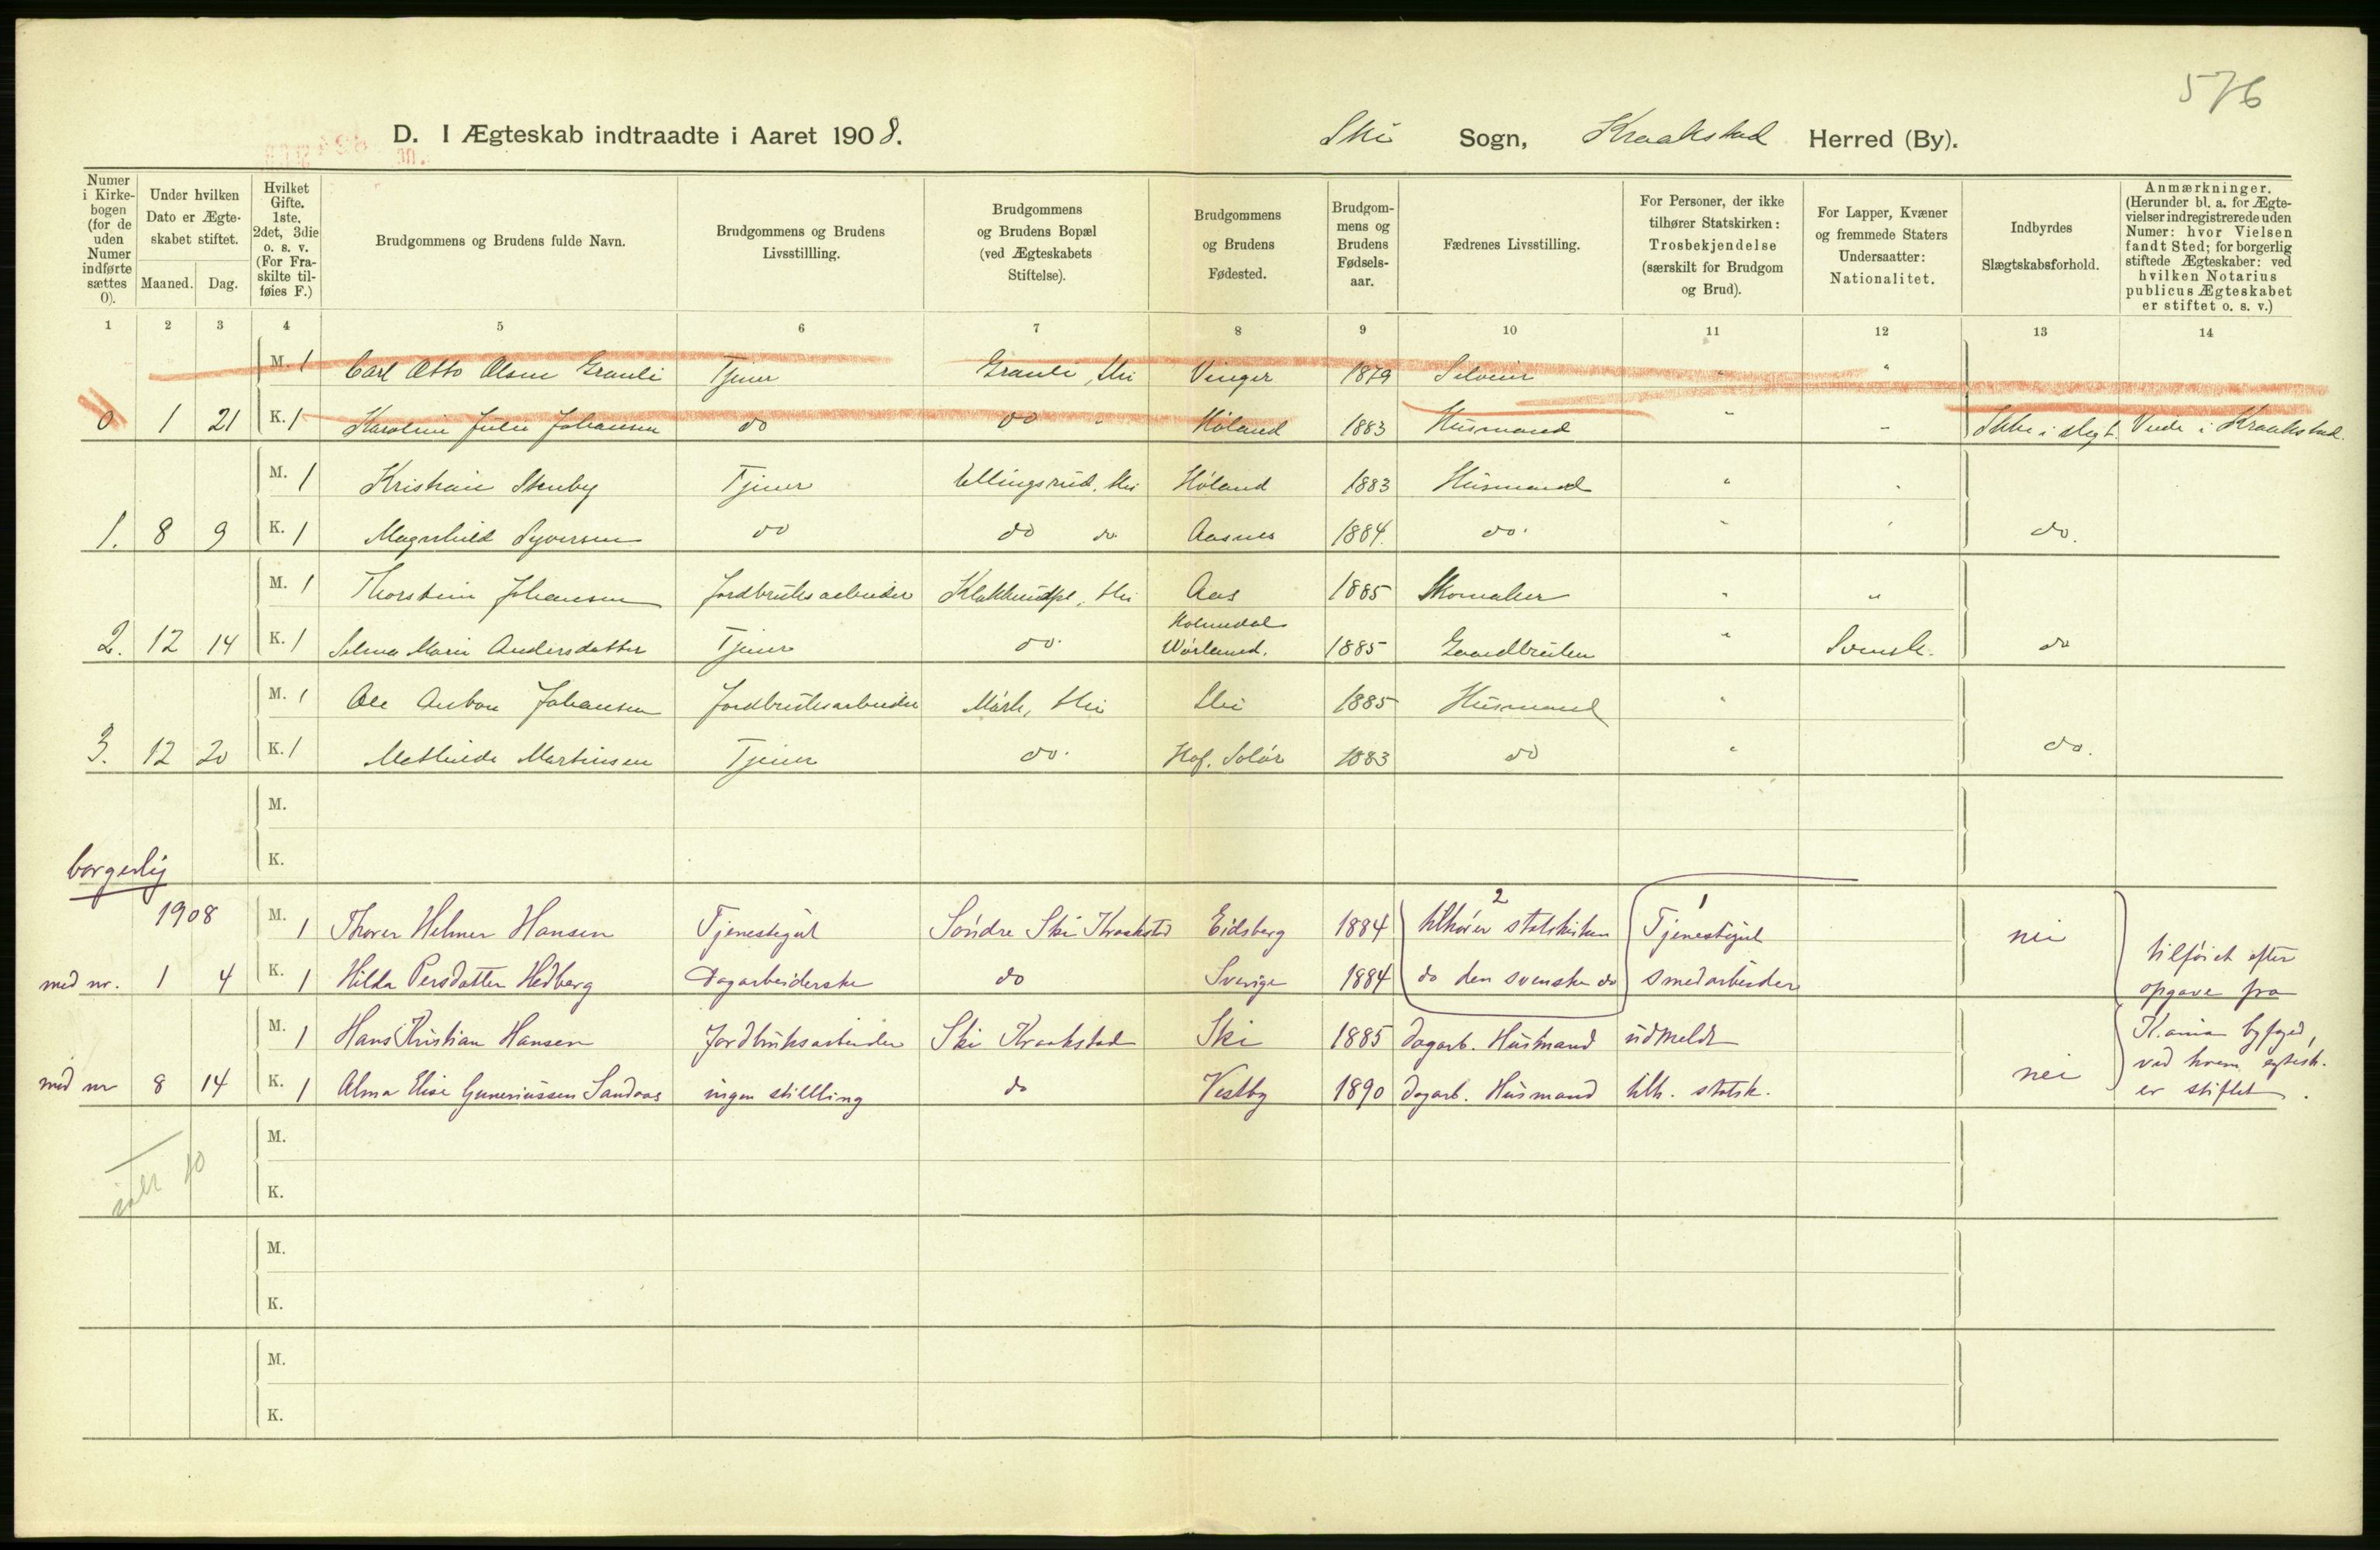 576
D. I Ægteskab indtraadte i Aaret 1908. Ski Sogn, Kraakstad Herred (By).
Numer i Kirkebogen (for de uden Numer indførte sættes 0).
Under hvilken Dato er Ægteskabet stiftet.
Maaned. Dag.
Hvilket Gifte. 1ste, 2det, 3die o. s. v. (For Fraskilte tilføies F.)
Brudgommens og Brudens fulde Navn.
Brudgommens og Brudens Livsstillling.
Brudgommens og Brudens Bopæl (ved Ægteskabets Stiftelse).
Brudgommens og Brudens Fødested.
Brudgommens og Brudens Fødselsaar.
Fædrenes Livsstilling.
For Personer, der ikke tilhører Statskirken: Trosbekjendelse (særskilt for Brudgom og Brud).
For Lapper, Kvæner og fremmede Staters Undersaatter: Nationalitet.
Indbyrdes Slægtskabsforhold.
Anmærkninger. (Herunder bl. a. for Ægtevielser indregistrerede uden Numer: hvor Vielsen fandt Sted; for borgerlig stiftede Ægteskaber: ved hvilken Notarius publicus Ægteskabet er stiftet o. s. v.)
1 2 3 4 5 6 7 8 9 10 11 12 13 14
M. 1 Carl Otto Olsen Granli Tjener Granli, Ski Vinger 1879 Selveier " "
0 1 21 K. 1 Karoline Julie Johansen do do " Höland 1883 Husmand " " Ikke i slegt. Viede i Kraakstad.
M. 1 Kristian Stenby Tjener Ellingsrud, Ski Höland 1883 Husmand " "
1. 8 9 K. 1 Magnhild Syversen do do do Aasnes 1884. do. " " do.
M. 1 Thorstein Johansen Jordbruksarbeider Ski Aas 1885 Skomaker " "
2. 12 14 K. 1 Selma Marie Andersdatter Tjener do. Holmedal Värland. 1885 Gaardbruker " Svensk. do
M. 1 Ole Anton Johansen Jordbruksarbeider Mörk, Ski Ski 1885 Husmand "
3. 12 20 K. 1 Mathilde Martinsen Tjener do. Hof. Solör 1883 do " do.
M.
K.
borgerlig
1908 M. 1 Thorer Helmer Hansen Tjenestegut Söndre Ski Kraakstad Eidsberg 1884 2 tilhörer statskirken 1 Tjenestegut nei
med nr. 1 4 K. 1 Hilda Persdatter Hedberg Dagarbeiderske do Sverige 1884 do den svenske do smedarbeider
M. 1 Hans Kristian Hansen Jordbruksarbeider Ski Kraakstad Ski 1885 dagarb. Husmand udmeldt
med nr 8 14 K. 1 Alma Elise Guneriussen Sandaas ingen stillling do Vestby 1890 dagarb. Husmand tilh. statsk. nei
tilföiet efter
opgave fra
K.ania byfoged,
ved hvem egtesk.
er stiftet.
M.
ialt 10
K.
M.
K.
M.
K.